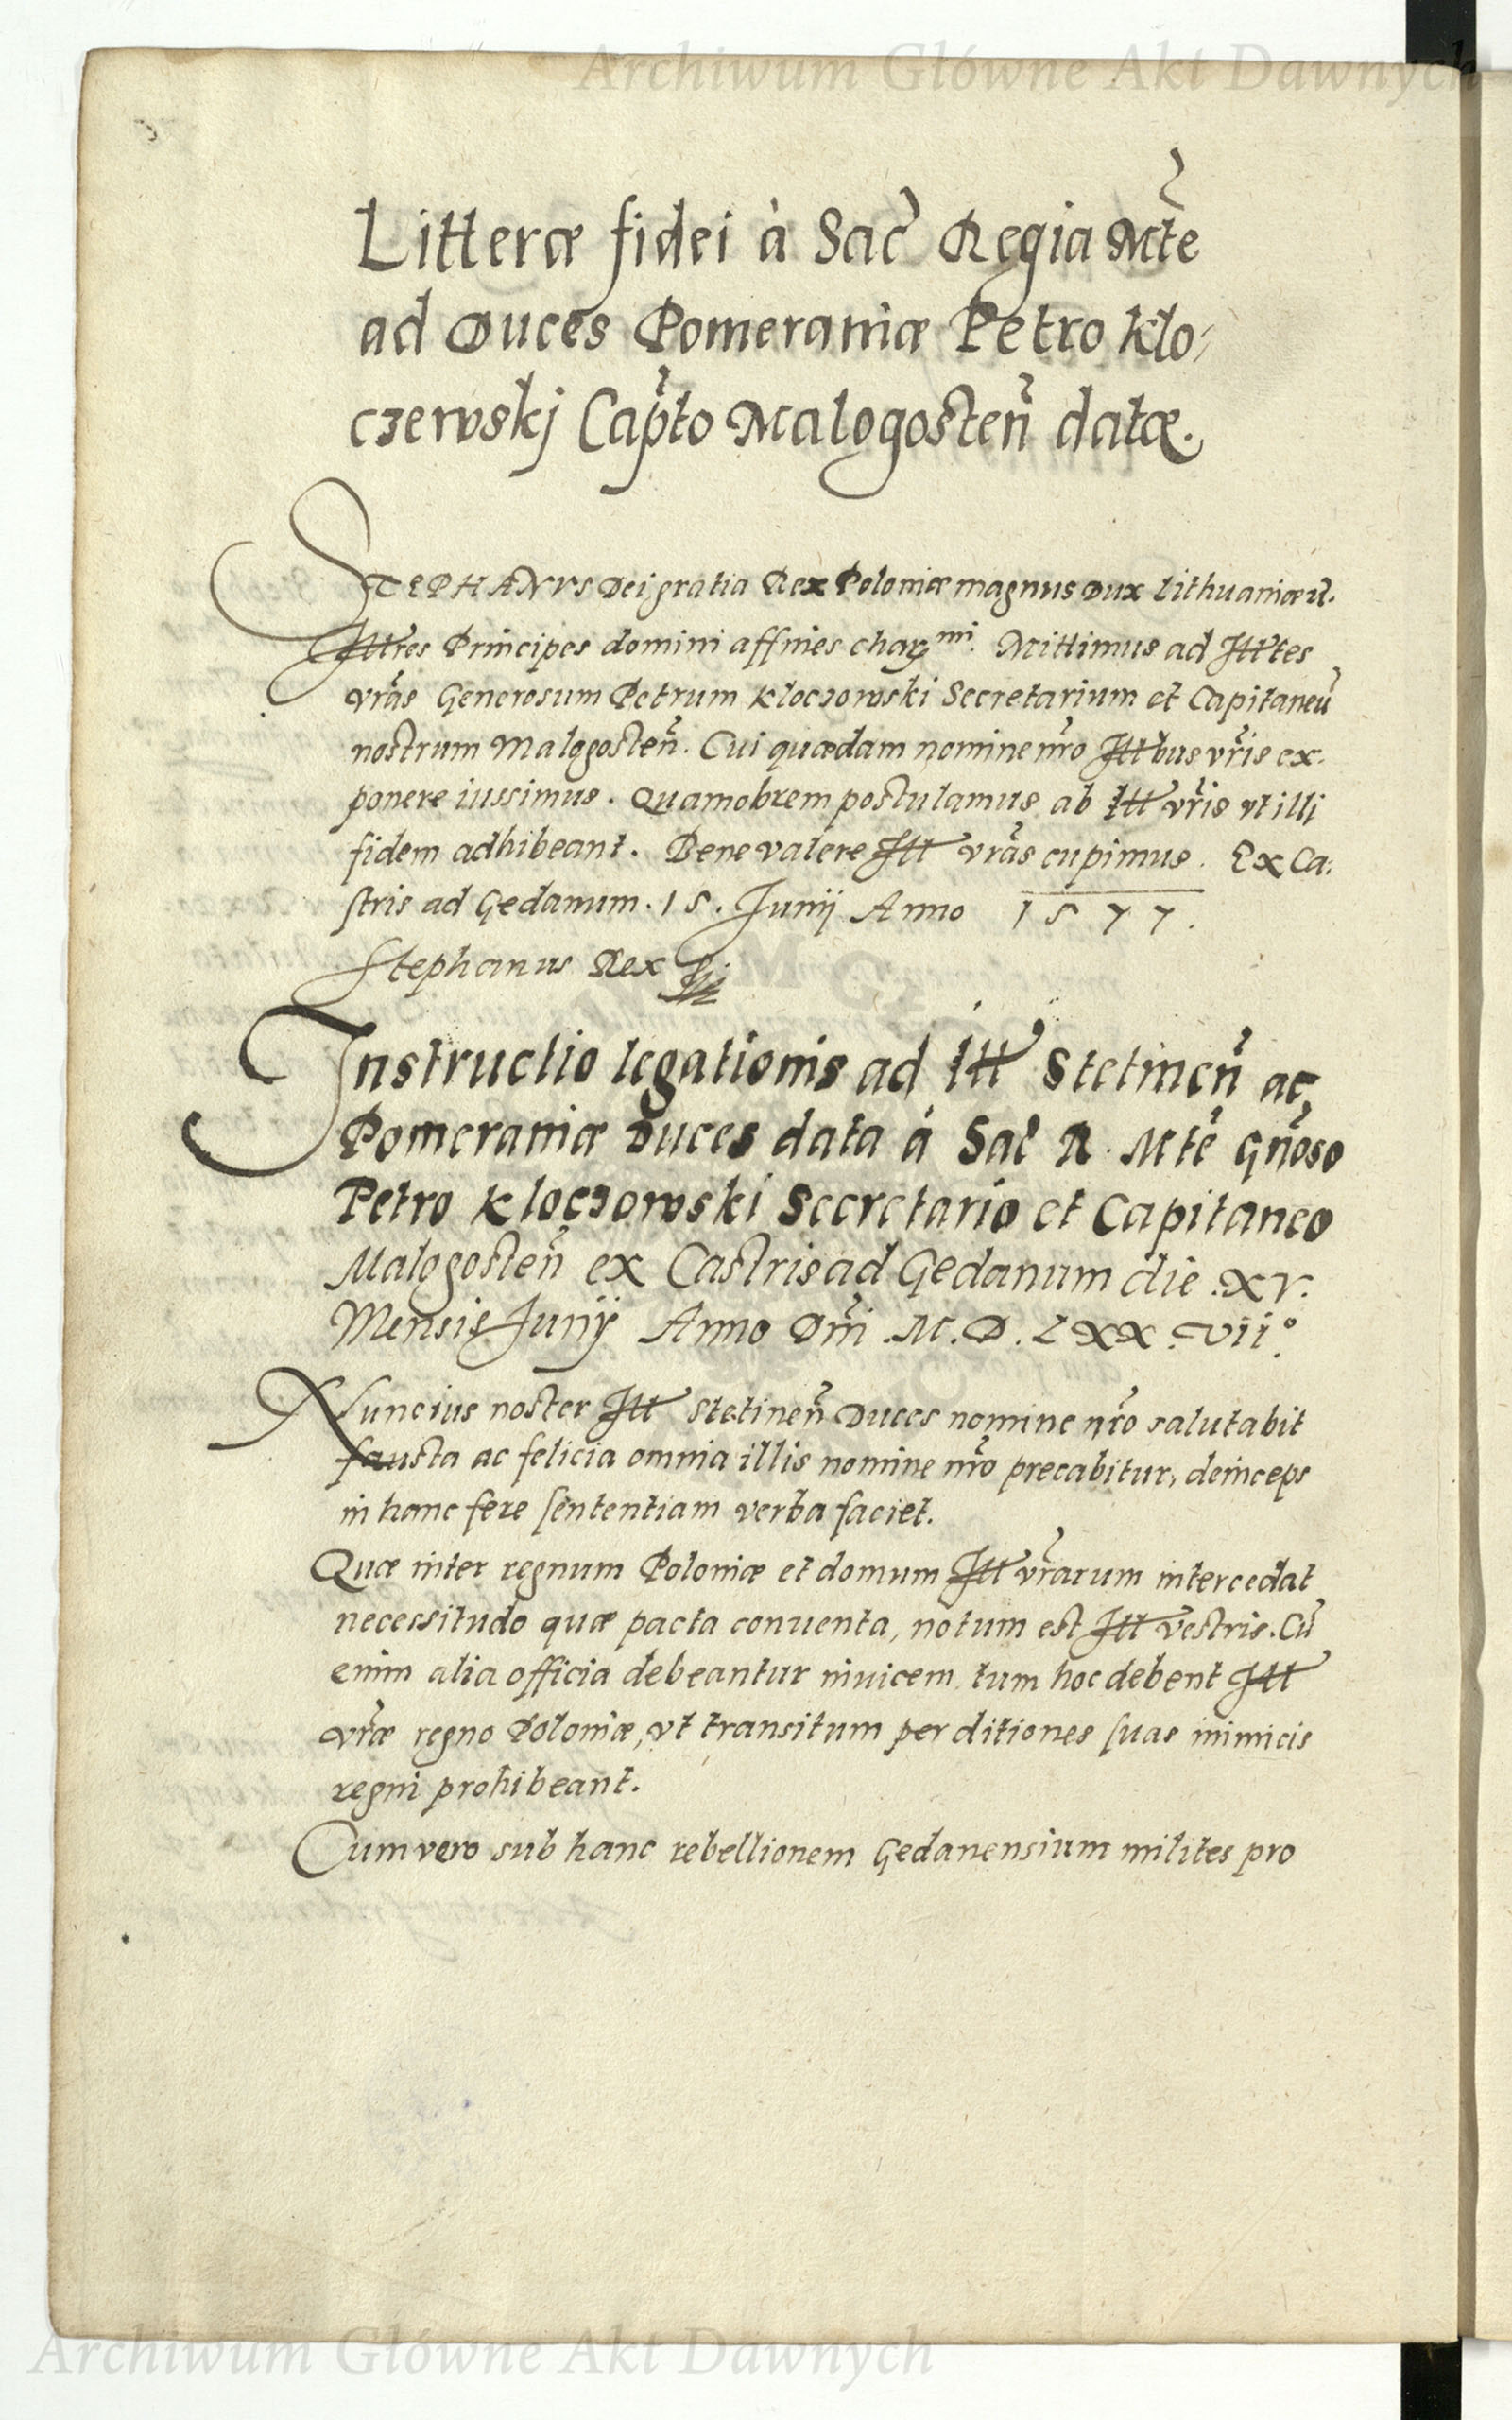 Archiwum Główne Akt Dawnych
Litteræ fidei à Sac̃ Regia Mt̃e
ad Duces Pomeraniæ Petro Klo-
czewskj Cap̃to Malogosteñ datæ.
STEPHANVS Dei gratia Rex Poloniæ magnus Dux Lithuaniæ
Illtres Principes domini affines char^mi. Mittimus ad Illtes
vr̃as Generosum Petrum Kloczowski Secretarium et Capitaneũ
nostrum Malogosteñ. Cui quædam nomine nr̃o Illbus vr̃is ex-
ponere iussimus. Quamobrem postulamus ab Ill vr̃is vt illi
fidem adhibeant. Bene valere Ill vr̃as cupimus. Ex Ca-
stris ad Gedanum. 15. Junij Anno 1577.
Stephanus Rex
Instructio legationis ad Ill Stetineñ ac
Pomeraniæ Duces data à Sac̃ R. Mtẽ Gñoso
Petro Kloczowski Secretario et Capitaneo
Malogosteñ ex Castris ad Gedanum die .XV.
Mensis Junij Anno Dñi .M.D.LXX.VII°.
Nuncius noster Ill Stetineñ Duces nomine nr̃o salutabit
fausta ac felicia omnia illis nomine nr̃o precabitur, deinceps
in hanc fere sententiam verba faciet.
Quæ inter regnum Poloniæ et domum Ill vr̃arum intercedat
necessitudo quæ pacta conuenta, notum est Ill vestris. Cũ
enim alia officia debeantur inuicem, tum hoc debent Ill
vr̃æ regno Poloniæ, vt transitum per ditiones suas inimicis
regni prohibeant.
Cum vero sub hanc rebellionem Gedanensium milites pro
Archiwum Główne Akt Dawnych